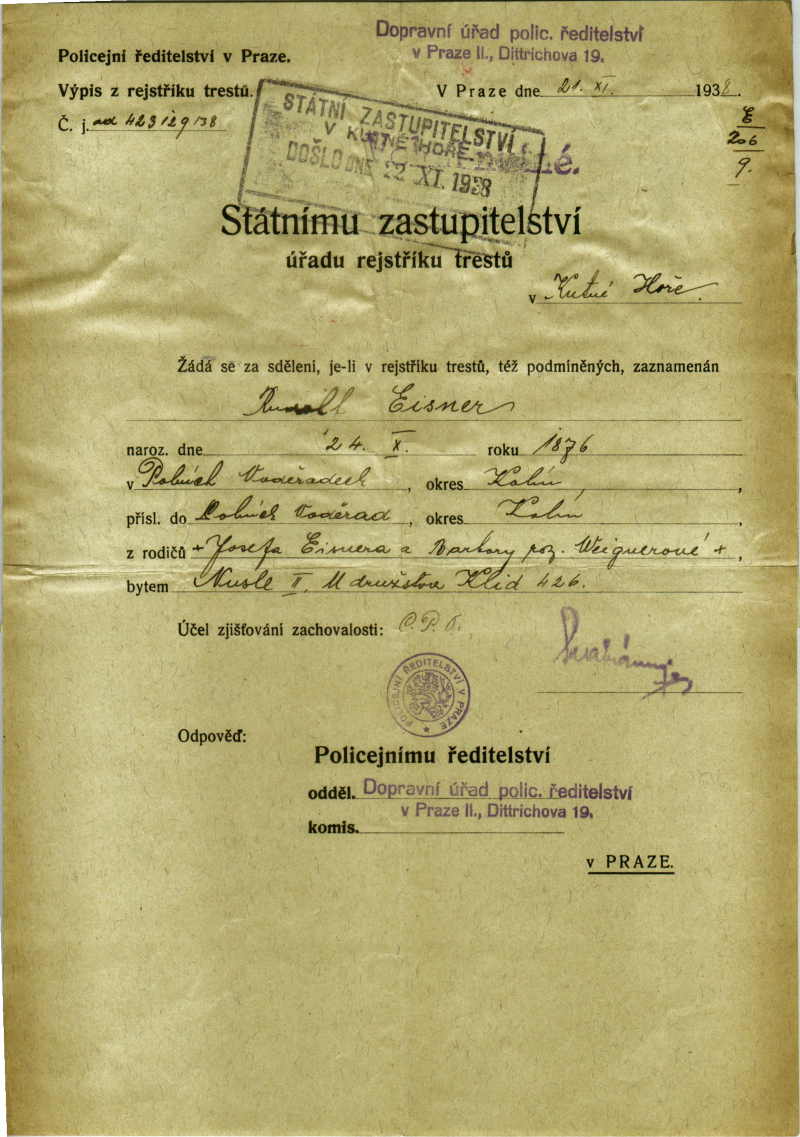 Dopravní úřad polic. ředitelství
v Praze II., Dittrichova 19.
Policejní ředitelství v Praze.
Výpis z rejstříku trestů.
V Praze dne 21. XI. 1938.
Č. j. ad 423129/38
E
206
9.
STÁTNÍ ZASTUPITELSTVÍ
V KUTNÉ HOŘE
DOŠLO DNE 22 XI. 1938
Státnímu zastupitelství
úřadu rejstříku trestů
v Kutné Hoře.
Žádá se za sdělení, je-li v rejstříku trestů, též podmíněných, zaznamenán
Rudolf Eisner
naroz. dne 24. X. roku 1876
v Polních Voděradech, okres Kolín,
přísl. do Polních Voděrad, okres Kolín,
z rodičů + Josefa Eisnera a Barbory roz. Weignerové +,
bytem Nusle II. U družstva Klid 426.
Účel zjišťování zachovalosti: O. P. O.
POLICEJNÍ ŘEDITELSTVÍ V PRAZE
Odpověď:
Policejnímu ředitelství
odděl. Dopravní úřad polic. ředitelství
v Praze II., Dittrichova 19.
komis.
v PRAZE.